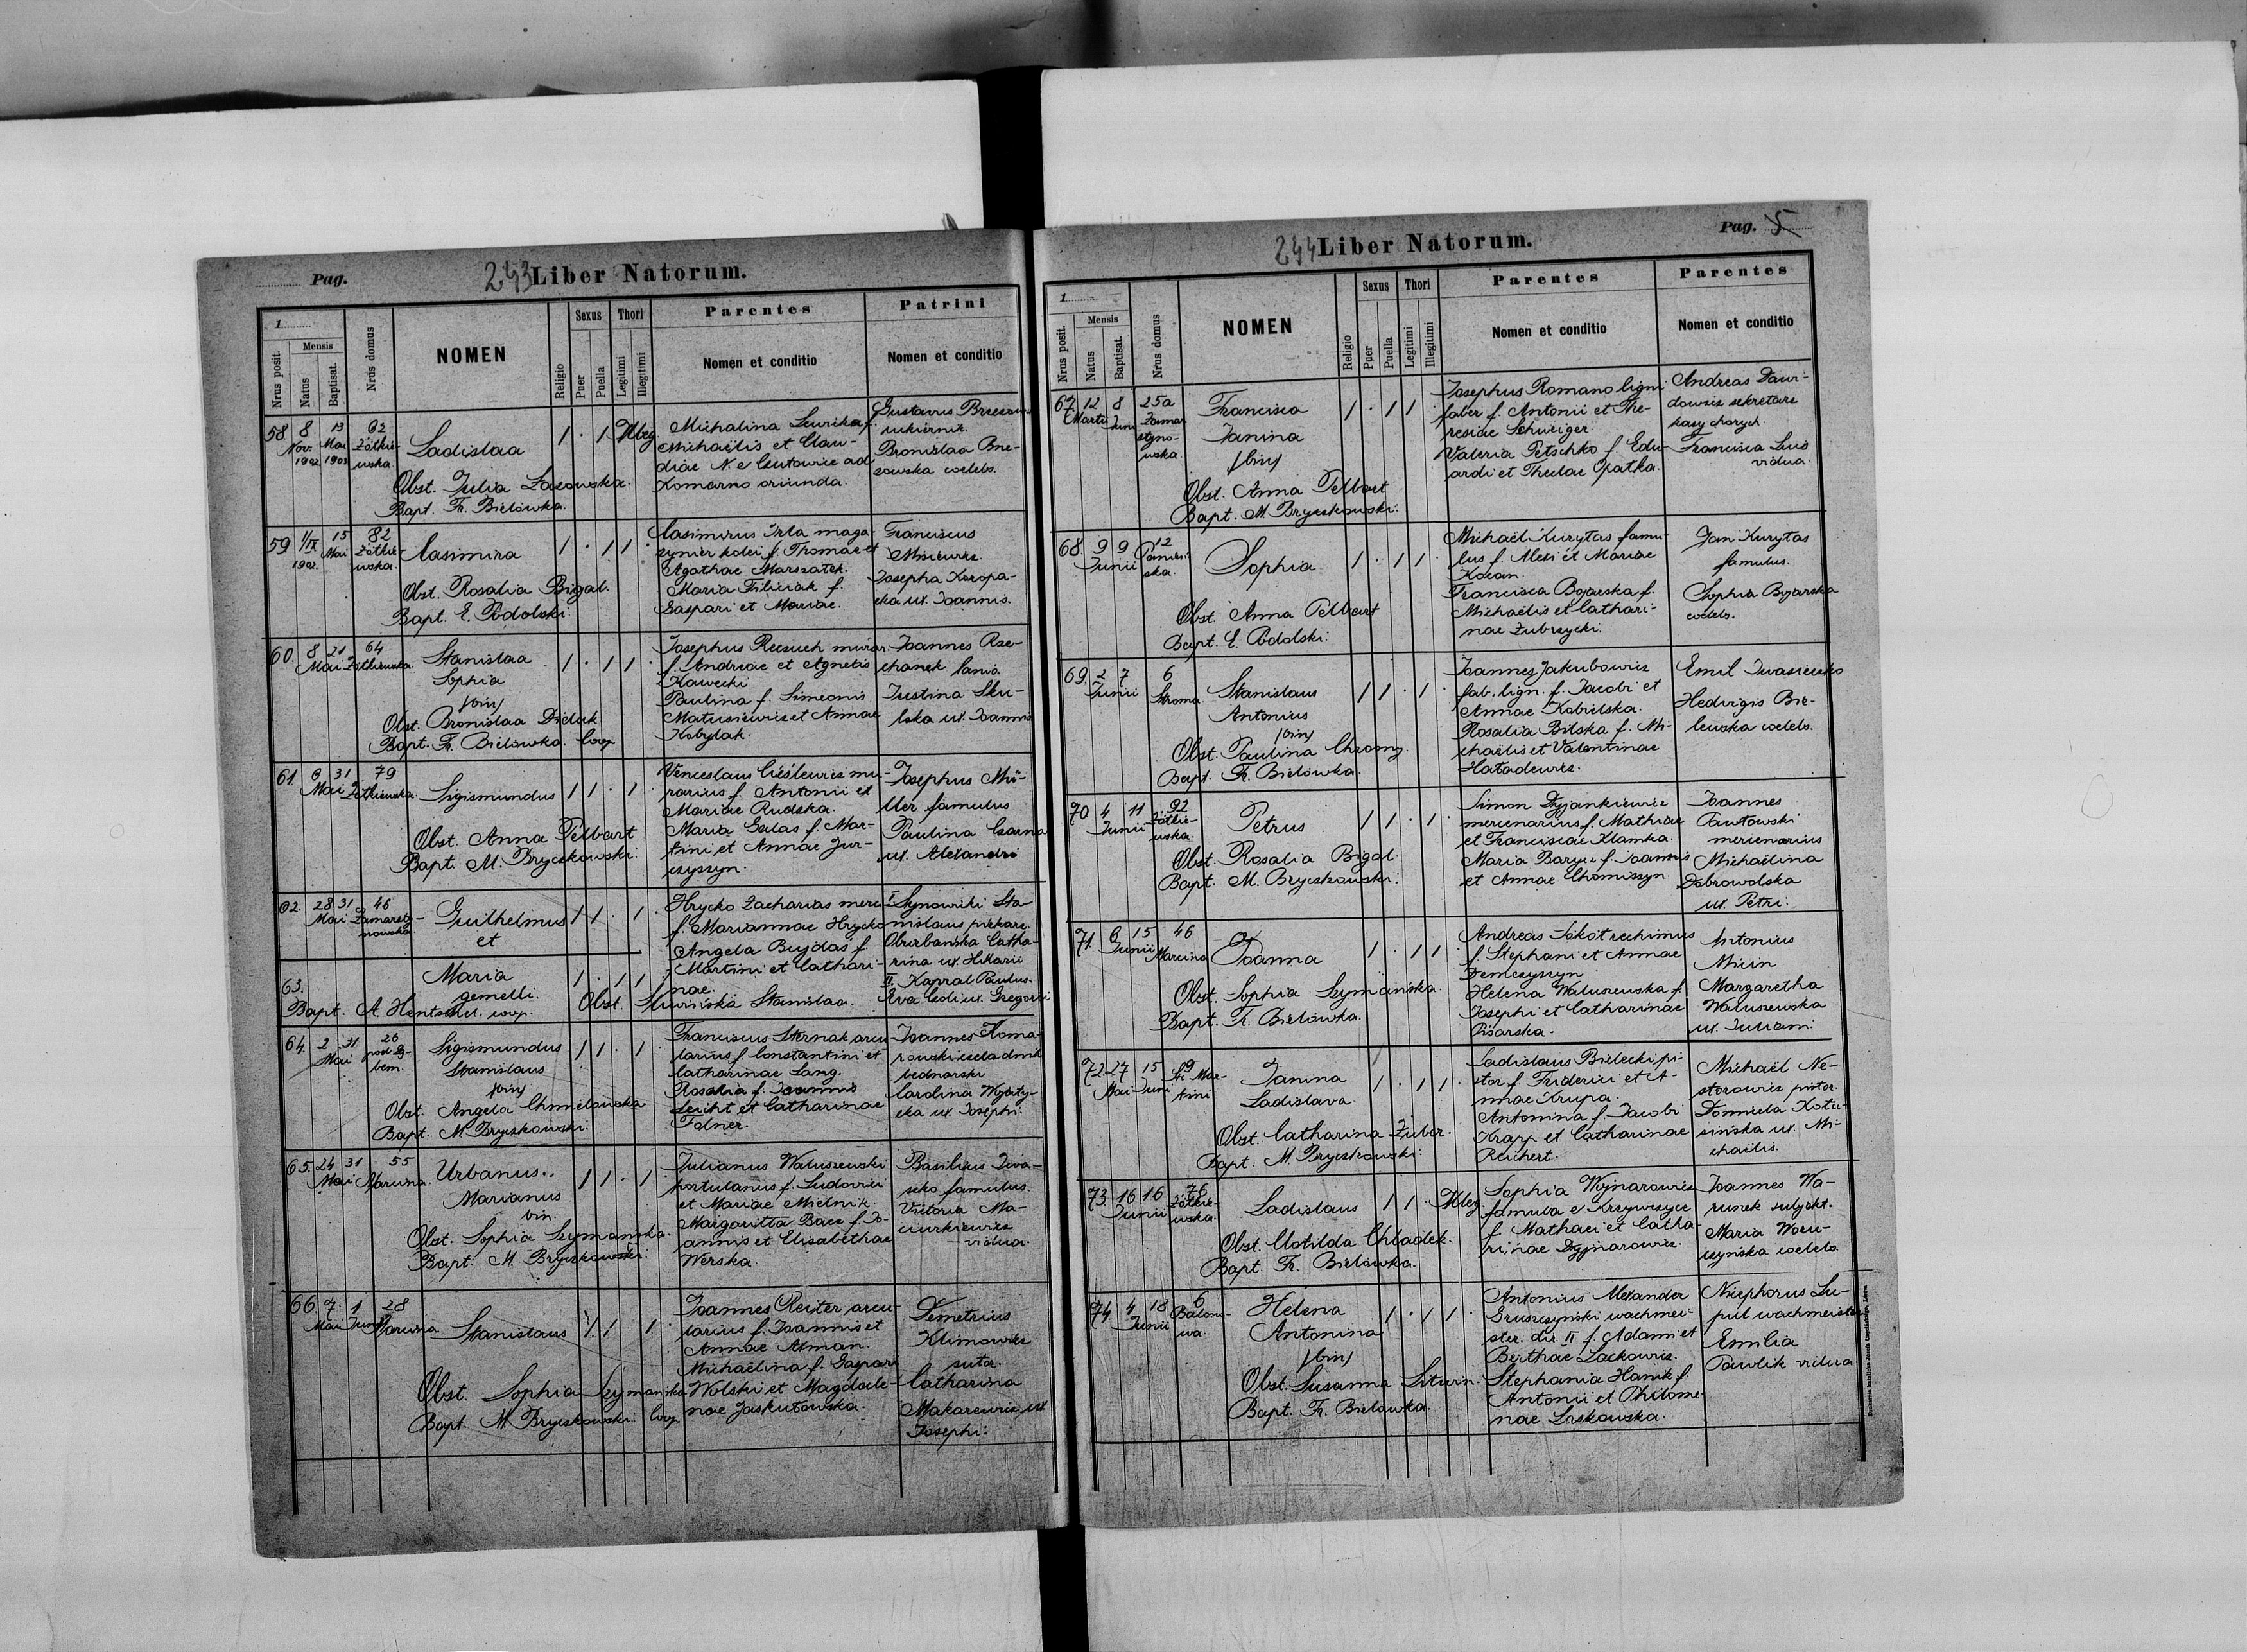 Pag. 243 Liber Natorum.
1
Nrus posit.
Mensis
Natus
Baptisat.
Nrus domus
NOMEN
Religio
Sexus
Puer
Puella
Thori
Legitimi
Illegitimi
Parentes
Nomen et conditio
Patrini
Nomen et conditio
58 8 Nov. 1902 13 Mai 1903
62 Żółkiewska
Ladislaa
1 . 1 Illeg
Obst. Julia Lasowska.
Bapt. Fr. Bielówka.
Michalina
Michaëlis et Clau-
diae N. e ad
Komarno oriunda.
Gustavus
cukiernik.
Bronislaa
coelebs.
59 1/IX 1902. 15 Mai
82 Żółkie-
wska.
Casimira
1 . 1 1 .
Obst. Rosalia Bigal.
Bapt. E. Podolski.
Casimirus Irla maga-
zynier kolei f. Thomae et
Agathae Marszałek.
Maria Filiciak f.
Gaspari et Mariae.
Franciscus
Josepha Koropa-
cka ux. Joannis.
60. 8 Mai 21
64 Żółkiewska
Stanislaa
Sophia
/bin/
1 . 1 1 .
Obst. Bronislaa Diduk
Bapt. Fr. Bielówka. Coop.
Josephus murar.
f. Andreae et Agnetis
Kawecki
Paulina f. Simeonis
Matusiewicz et Annae
Kobylak.
Joannes Rze-
chanek lanio.
Justina Sku-
lska ux. Joannis
61. 6 Mai 31
79 Żółkiewska.
Sigismundus
1 1 . 1 .
Obst. Anna Pelbart
Bapt. M. Bryczkowski.
Venceslaus Cieślewicz mu-
rarius f. Antonii et
Mariae Rudzka.
Maria Galas f. Mar-
tini et Annae Jur-
czyszyn.
Josephus Mü-
ller famulus
Paulina Czarna
ux. Alexandri
62. 28 Mai 31
46 Zamarsty-
nowska
Guilhelmus
et
1 1 . 1 .
63.
Maria
gemelli.
1 . 1 1
Bapt. A. Hentschel. coop. Obst. Śliwińska Stanislaa.
Hrycko Zacharias merc.
f. Mariannae Hrycko
Angela Bujdas f.
Martini et Cathari-
nae.
I Skynowiki Sta-
nislaus piekarz.
Oburbańska Catha-
rina ux. Hilarii
II. Kapral Paulus.
Eva ux. Gregorii
64. 2 Mai 31
26
Sigismundus
Stanislaus
/bin/
1 1 . 1 .
Obst. Angela Chmielowska
Bapt. M. Bryczkowski.
Franciscus Sternak arcu-
larius f. Constantini et
Catharinae Lang.
Rosalia f. Joannis
et Catharinae
Folner.
Joannes Koma-
rowski czeladnik
bednarski
Carolina
ux. Josephi.
65. 24 Mai 31
55 Maruna
Urbanus
Marianus
bin.
1 1 . 1 .
Obst. Sophia Szymańska.
Bapt. M. Bryczkowski.
Julianus Waluszewski
portulanus f. Ludovici
et Mariae Mielnik
Margaritta Bacz f. Jo-
annis et Elisabethae
Werska.
Basilius Iwa-
szko famulus.
Victoria Ma-
ciurkiewicz
vidua.
66. 7. Mai 1 Junii
28 Maruna
Stanislaus
1 1 . 1 .
Obst. Sophia Szymańska
Bapt. M. Bryczkowski Coop.
Joannes Reiter arcu-
larius f. Joannis et
Annae Atman.
Michaëlina f. Gaspari
Wolski et Magdale-
nae Jaskułowska.
Demetrius
Klimowicz
sutor
Catharina
Makarewicz ux
Josephi.
244 Liber Natorum. Pag. 5
1
Nrus posit.
Mensis
Natus
Baptisat.
Nrus domus
NOMEN
Religio
Sexus
Puer
Puella
Thori
Legitimi
Illegitimi
Parentes
Nomen et conditio
Parentes
Nomen et conditio
67. 12 Martii 8 Junii
25a Zamar-
styno-
wska
Francisca
Janina
/bin/
1 . 1 1 .
Obst. Anna Pelbart
Bapt. M. Bryczkowski.
Josephus Romano ligni
faber f. Antonii et The-
resiae Schweiger.
Valeria Petschko f. Edu-
ardi et Theclae Opatka.
Andreas Dawi-
dowicz sekretarz
kasy chorych.
Francisca Lus
vidua.
68. 9 9 Junii
12
Sophia
1 . 1 1 .
Obst. Anna Pelbart
Bapt. E. Podolski.
Michaël Kurytas famu-
lus f. Alexi et Mariae
Kocan.
Francisca Bojarska f.
Michaëlis et Cathari-
nae Zubrzycki.
Jan Kurytas
famulus.
Sophia Bojarska
coelebs.
69. 2 7 Junii
6 Stroma.
Stanislaus
Antonius
/bin/
1 1 . 1 .
Obst. Paulina Chromy.
Bapt. Fr. Bielówka.
Joannes Jakubowicz
fab. lign. f. Jacobi et
Annae Kobielska.
Rosalia Bilska f. Mi-
chaëlis et Valentinae
Hatadewicz.
Emil Iwasieczko
Hedvigis Bie-
lewska coelebs.
70 4 11 Junii
92 Żółkie-
wska.
Petrus
1 1 . 1 .
Obst. Rosalia Bigal.
Bapt. M. Bryczkowski.
Simon Dyjankiewicz
mercenarius f. Mathiae
et Franciscae Klamka.
Maria Barycz f. Joannis
et Annae Chomiszyn.
Joannes
Pawłowski
mercenarius
Michaëlina
Dobrowolska
ux. Petri.
71. 6 15 Junii
46 Maruna
Joanna
1 . 1 1 .
Obst. Sophia Szymańska.
Bapt. Fr. Bielówka.
Andreas Sokół
f. Stephani et Annae
Demczyszyn
Helena Waluszewska f.
Josephi et Catharinae
Pisarska.
Antonius
Micin
Margaretha
Waluszewska
ux. Juliani
72. 27 Mai 15 Juni
19 St. Mar-
tini
Janina
Ladislava
1 . 1 1 .
Obst. Catharina Zuber.
Bapt. M. Bryczkowski.
Ladislaus Bielecki pi-
stor f. Friderici et A-
nnae Krupa.
Antonina f. Jacobi
Krapp et Catharinae
Reichert.
Michaël Ne-
storowicz pistor.
Domicela Kotu-
sińska ux. Mi-
chaëlis.
73. 16 16 Junii
76 Żółkie-
wska.
Ladislaus
1 1 . Illeg
Obst. Clotilda Chladek.
Bapt. Fr. Bielówka.
Sophia Wojnarowicz
famula e Krzywczyce
f. Mathaei et Catha-
rinae
Joannes Wa-
rusek subjekt.
Maria Woru-
szyńska coelebs.
74. 4 18 Junii
6 Balono-
wa.
Helena
Antonina
/bin/
1 . 1 1 .
Obst. Susanna Liturn.
Bapt. Fr. Bielówka.
Antonius Alexander
Gruszczyński wachmei-
ster. dir. II f. Adami et
Berthae Lackowicz.
Stephania Hanik f.
Antonii et Philome-
nae
Nicephorus Łu-
pul wachmeister
Emilia
Pawlik vidua